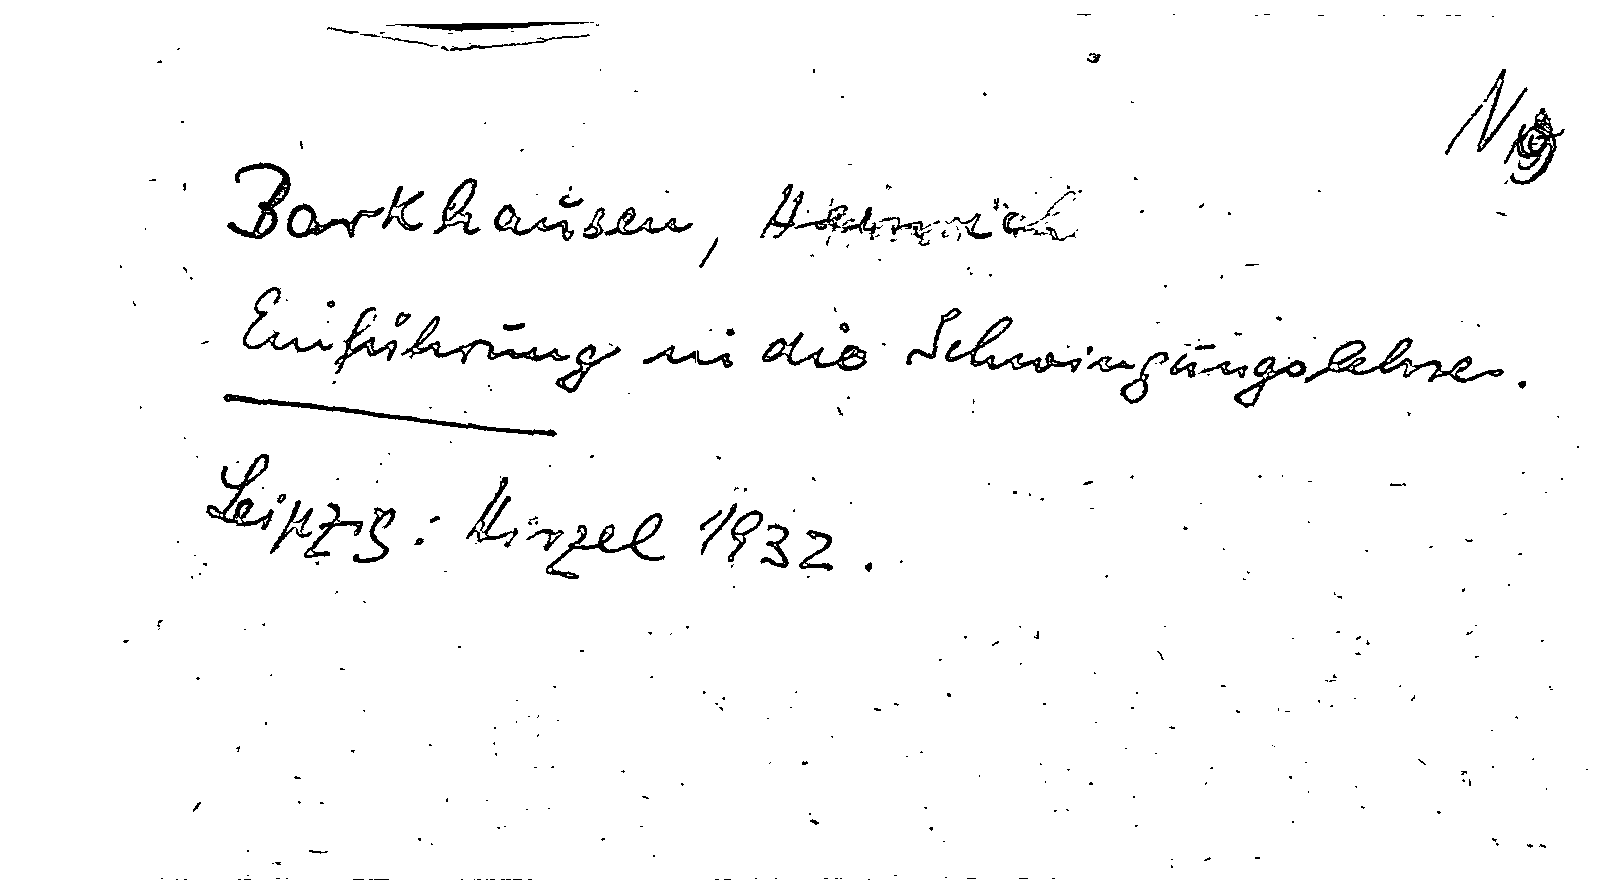 N
Barkhausen, Heinrich
Einführung in die Schwingungslehre.
Leipzig: Hirzel 1932.